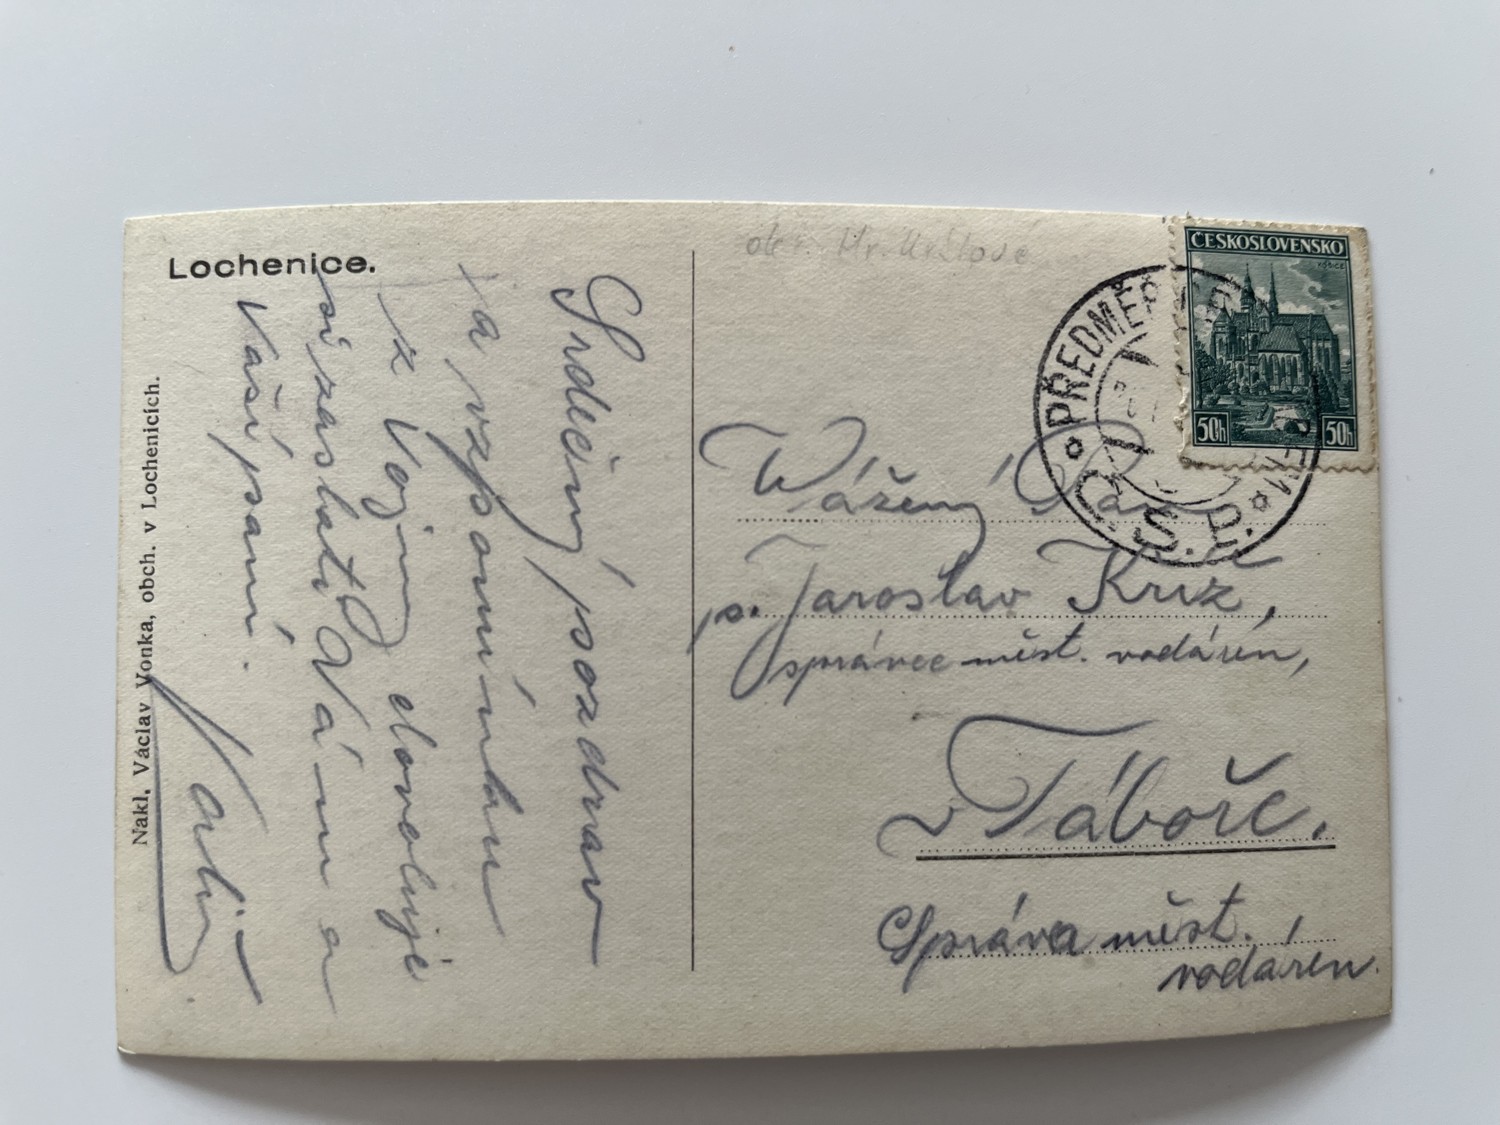 Lochenice.
Nakl. Václav Vonka, obch. v Lochenicích.
Srdečný pozdrav
a vzpomínku
z Vojny dovoluje
si zaslati Vám a
Vaší paní.
okr. Hr. Králové
ČESKOSLOVENSKO
KOŠICE
50h 50h
PŘEDMĚŘ
Vážený Pan
p. Jaroslav Kříž,
správce měst. vodáren,
v Táboře.
Správa měst.
vodáren.